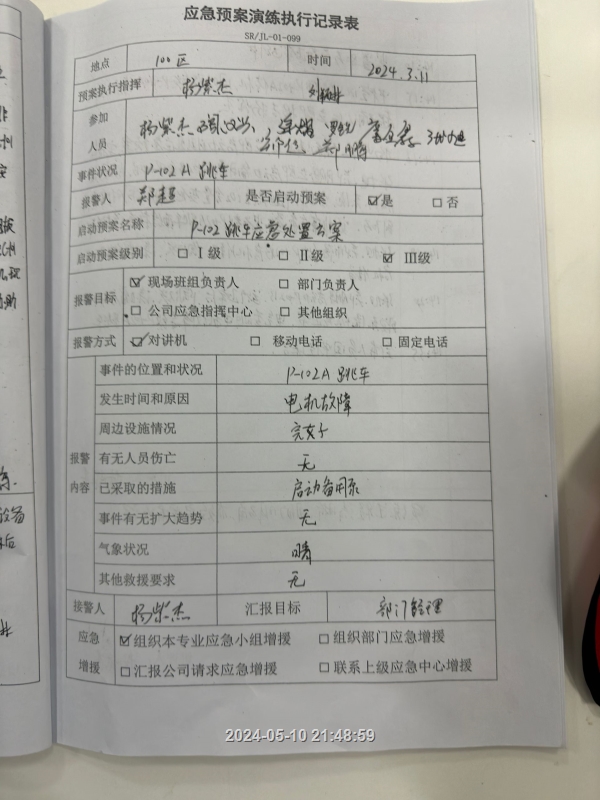 应急预案演练执行记录表
SR/JL-01-099
地点 100区 时间 2024.3.11
预案执行指挥 杨紫杰
参加人员 杨紫杰 郑鹏
事件状况 P-102A 跳车
报警人 郑超 是否启动预案 ☑是 □否
启动预案名称 P-102跳车应急处置方案
启动预案级别 □Ⅰ级 □Ⅱ级 ☑Ⅲ级
报警目标 ☑现场班组负责人 □部门负责人
□公司应急指挥中心 □其他组织
报警方式 ☑对讲机 □移动电话 □固定电话
报警内容
事件的位置和状况 P-102A 跳车
发生时间和原因 电机故障
周边设施情况 完好
有无人员伤亡 无
已采取的措施 启动备用泵
事件有无扩大趋势 无
气象状况 晴
其他救援要求 无
接警人 杨紫杰 汇报目标 部门管理
应急增援 ☑组织本专业应急小组增援 □组织部门应急增援
□汇报公司请求应急增援 □联系上级应急中心增援
2024-05-10 21:48:59